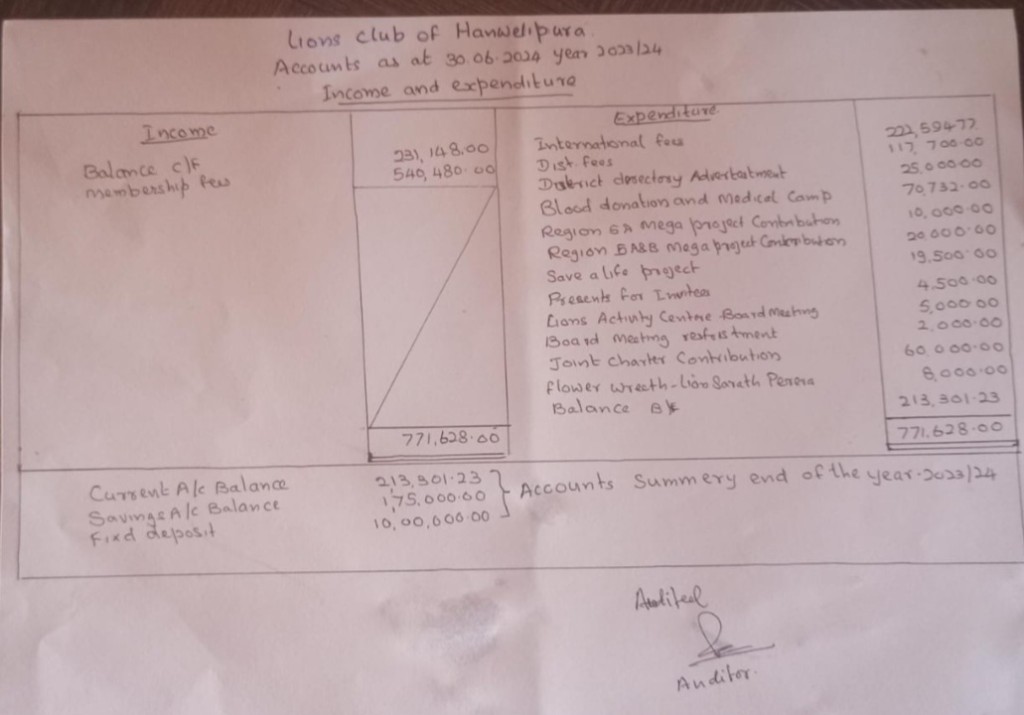 Lions Club of Hanwelipura.
Accounts as at 30.06.2024 year 2023/24
Income and expenditure
Income
Balance C/F 231,148.00
membership fees 540,480.00
771,628.00
Expenditure
International fees 222,594.77
Dist. fees 117,700.00
District Advertestment 25,000.00
Blood donation and Medical Camp 70,732.00
Region 6A Mega project Contribution 10,000.00
Region BA&B Mega project Contribution 20,000.00
Save a life project 19,500.00
Presents for Invitees 4,500.00
Lions Activity Centre Board Meeting 5,000.00
Board Meeting 2,000.00
Joint Charter Contribution 60,000.00
Flower Wreeth - Lion Sarath Perera 8,000.00
Balance B/F 213,301.23
771,628.00
Current A/c Balance 213,301.23
Savings A/c Balance 175,000.00
Fixd deposit 10,00,000.00
Accounts Summery end of the year - 2023/24
Audited
Auditor.